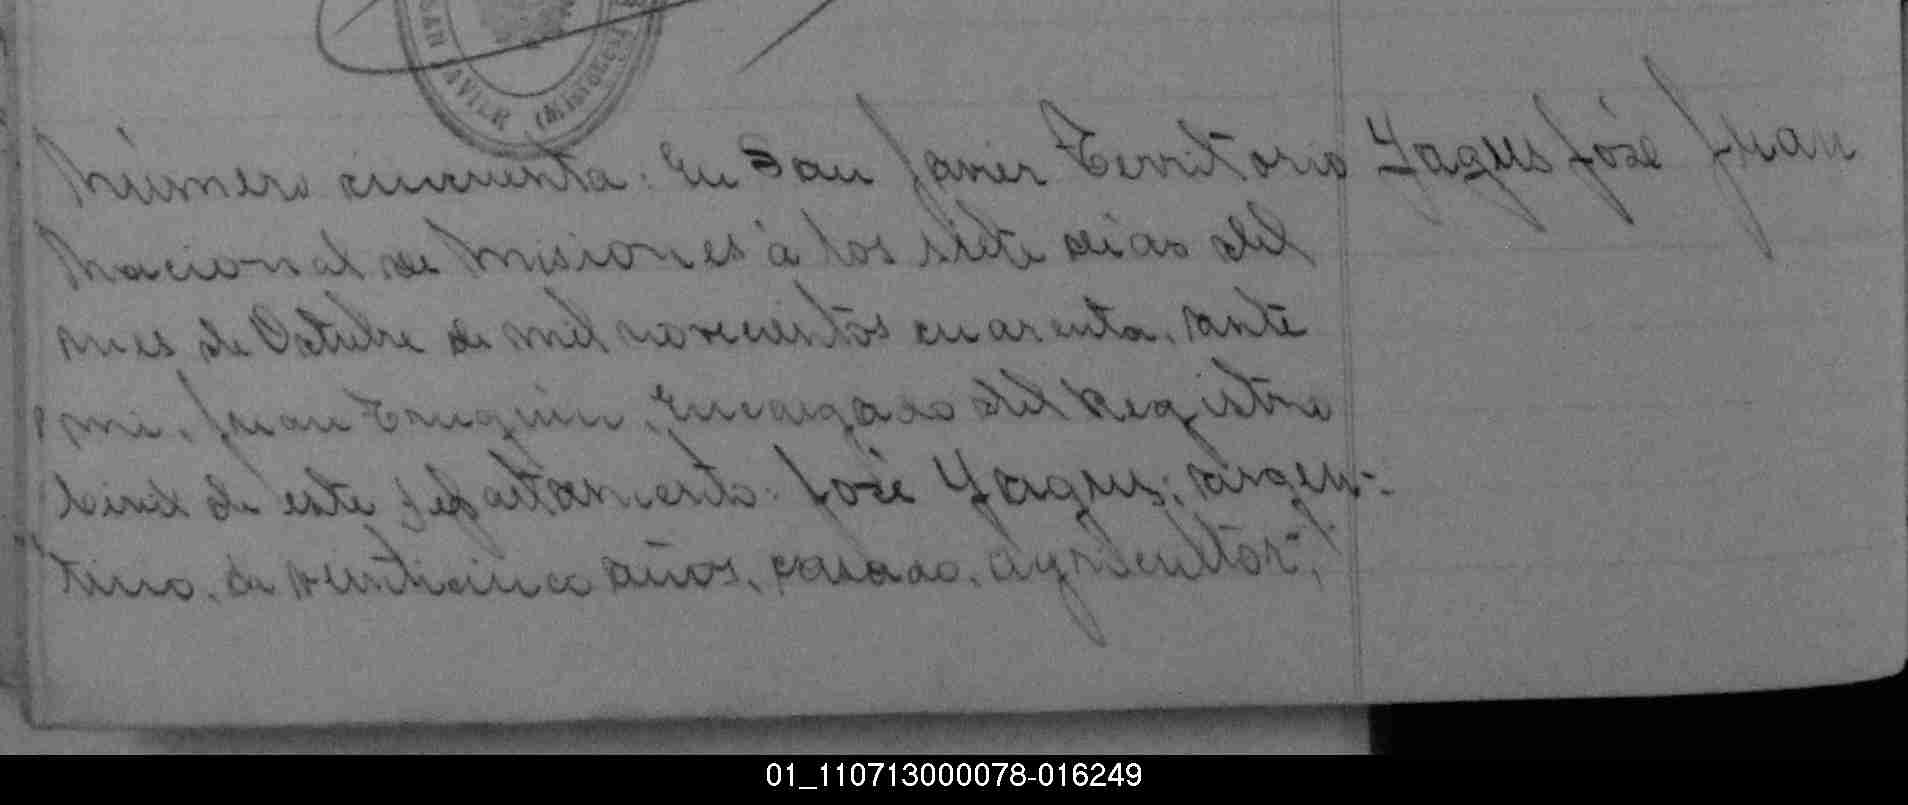 SAN JAVIER (Misiones)
Número cincuenta. En San Javier Territorio
Nacional de Misiones á los siete dias del
mes de Octubre de mil novecientos cuarenta, ante
mi, Juan Encargado del Registro
Civil de este departamento: José Yagus, argen-
tino, de veinticinco años, casado, agricultor,
Yagus José Juan
01_110713000078-016249